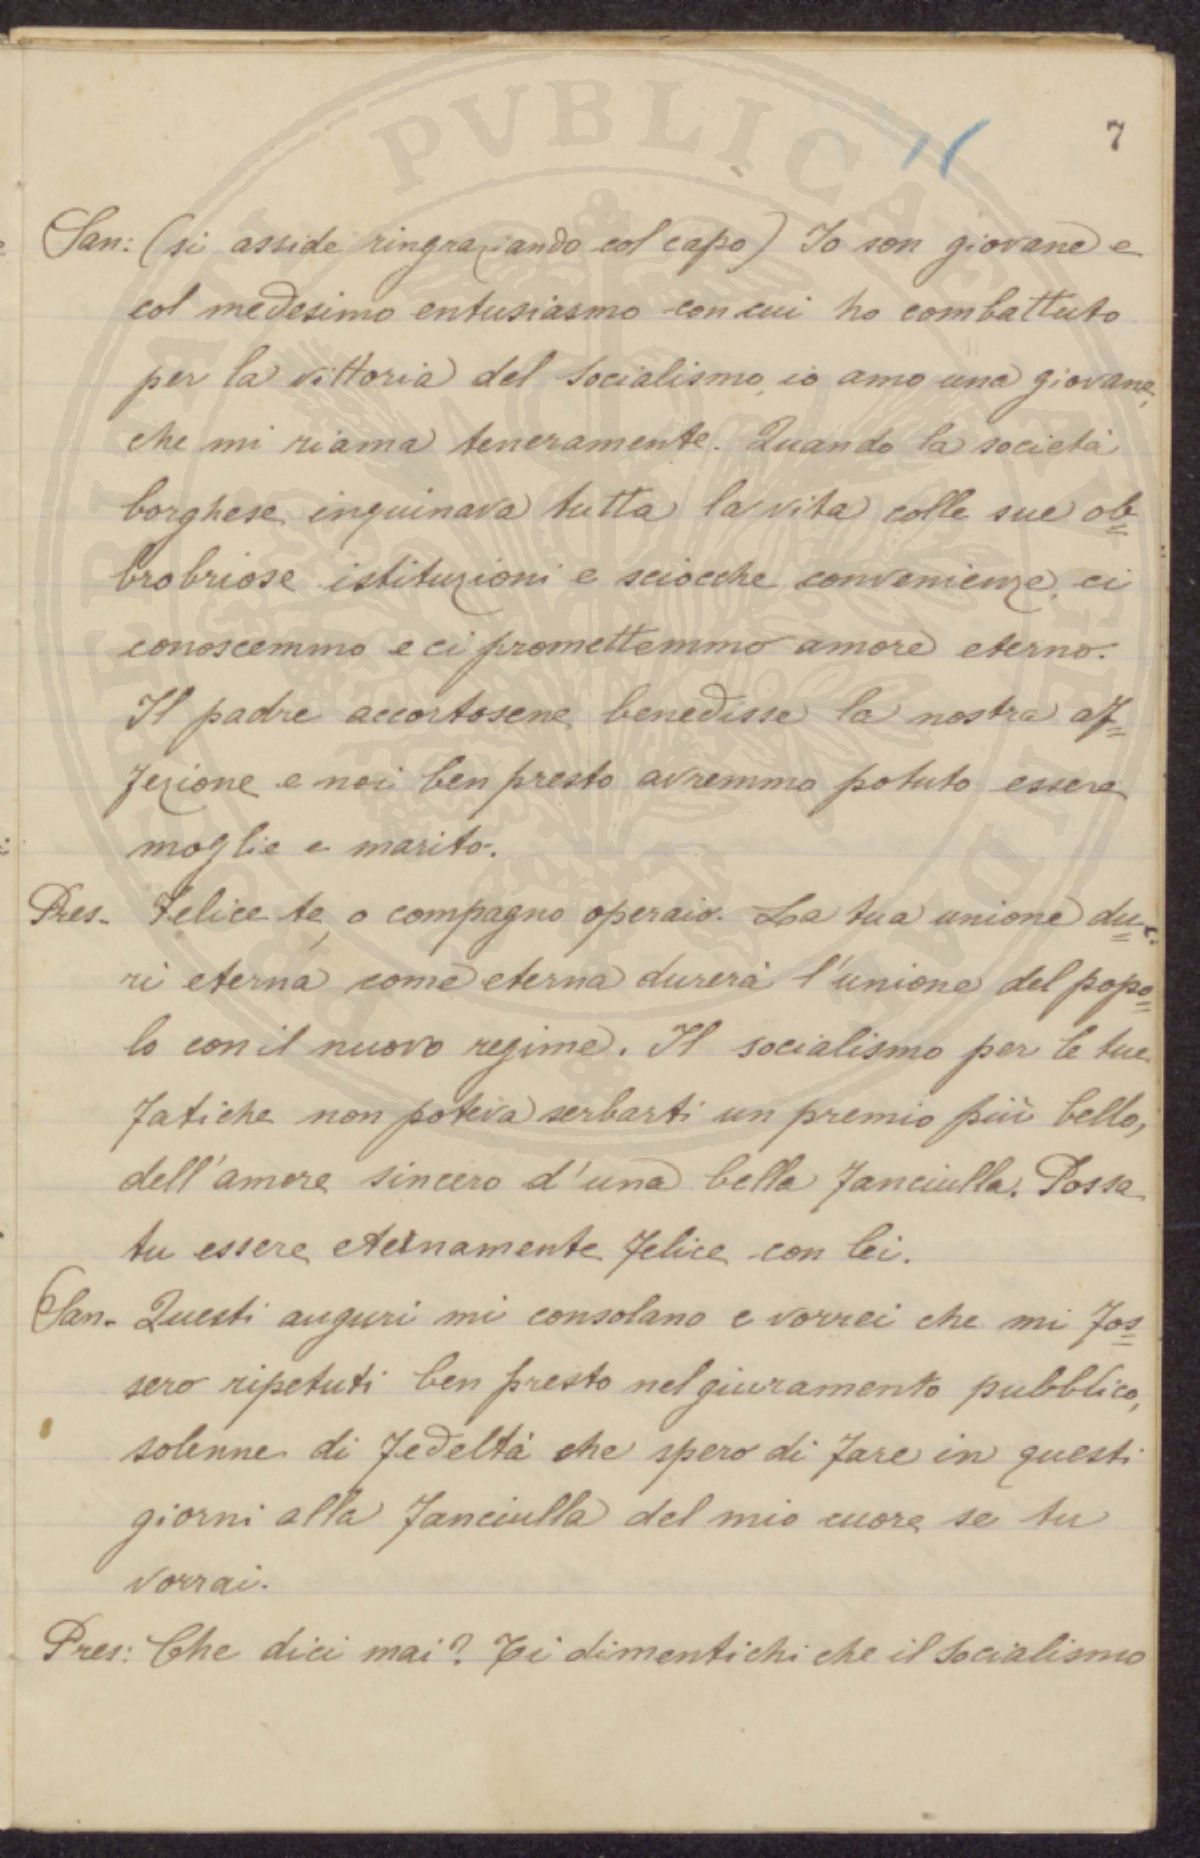 7
San: (si asside ringraziando col capo) Io son giovane e
col medesimo entusiasmo con cui ho combattuto
per la vittoria del Socialismo, io amo una giovane,
che mi riama teneramente. Quando la società
borghese inquinava tutta la vita colle sue ob=
brobriose istituzioni e sciocche convenienze, ci
conoscemmo e ci promettemmo amore eterno.
Il padre accortosene benedisse la nostra af=
fezione e noi ben presto avremmo potuto essere
moglie e marito.
Pres- Felice te, o compagno operaio. La tua unione du=
ri eterna, come eterna durerà l'unione del popo=
lo con il nuovo regime. Il socialismo per le tue
fatiche non poteva serbarti un premio più bello,
dell'amore sincero d'una bella fanciulla. Possa
tu essere eternamente felice con lei.
San- Questi auguri mi consolano e vorrei che mi fos=
sero ripetuti ben presto nel giuramento pubblico,
solenne di fedeltà che spero di fare in questi
giorni alla fanciulla del mio cuore se tu
vorrai.
Pres: Che dici mai? Ti dimentichi che il Socialismo